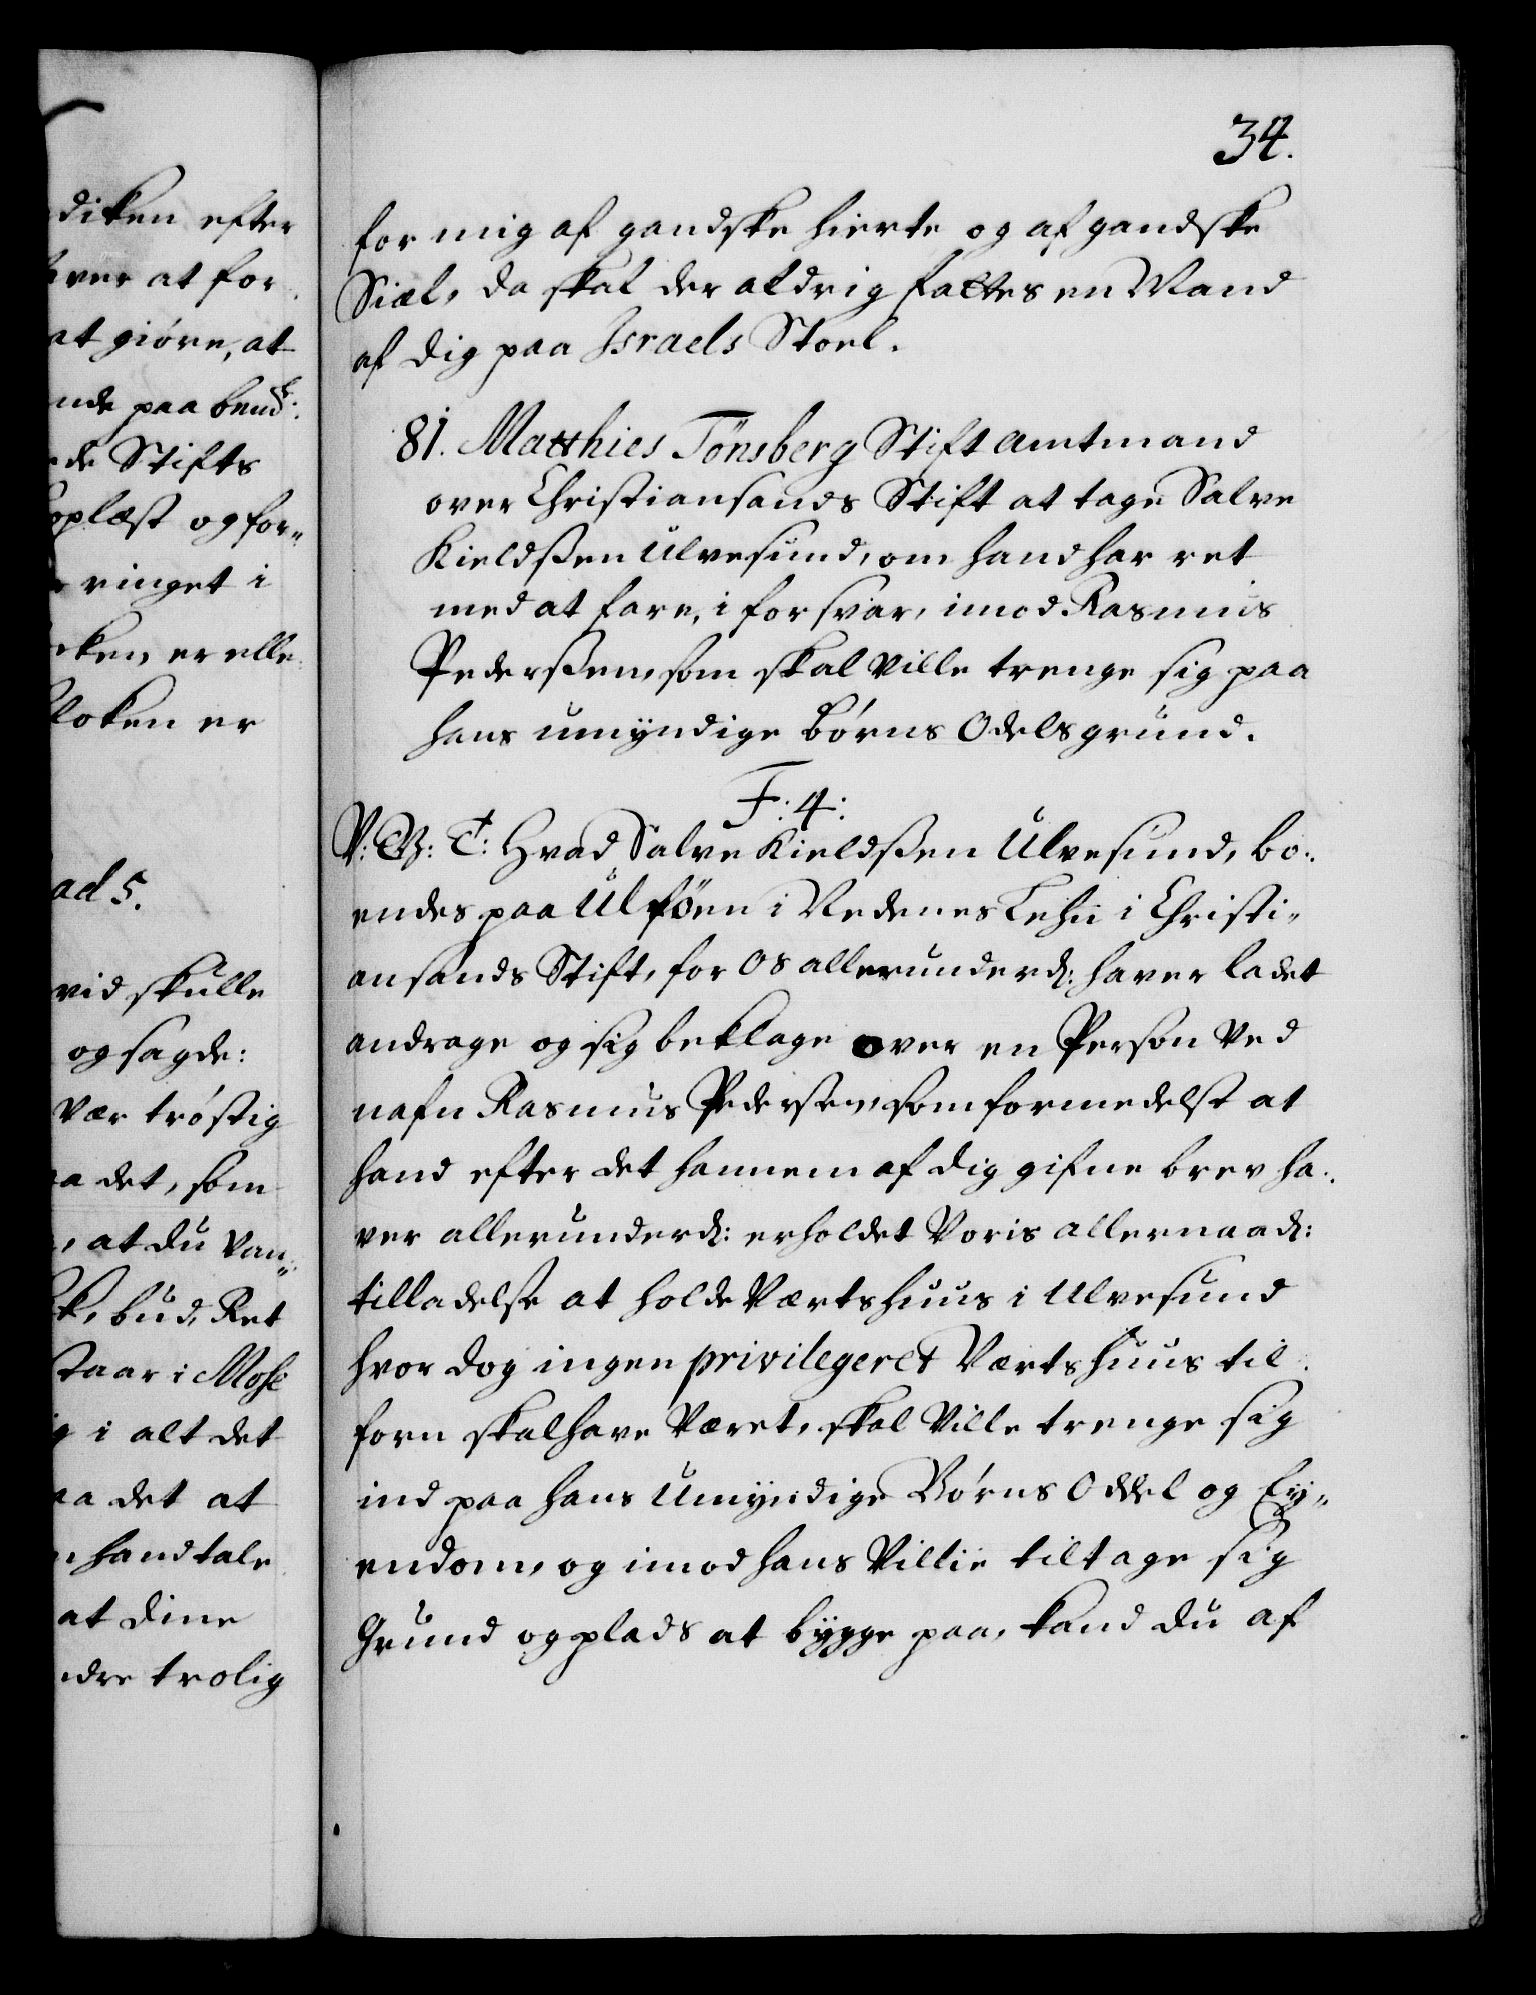 diken efter
ver at for
at giöre, at
nde paa bemte:
de Stifts
oplæst og for„
ringet i
ken, er elle
loken er
ad 5.
vid skulle
og sagde:
vær tröstig
a det, som
, at du van„
k, bud, Ret
staar i Mose
g i alt det
aa det at
hand tale
at dine
dre trolig
34.
for mig af gandske hierte og af gandske
Siæl, da skal der aldrig fattes en Mand
af dig paa Israels Stoel.
81. Matthies Tönsberg Stift amtmand
over Christiansands Stift at tage Salve
Kieldssen Ulvesund, om hand har ret
med at fare, i forsvar, imod Rasmus
Pederssen, som skal ville trenge sig paa
hans umyndige börns Odels grund.
F: 4:
V: G: T: Hvad Salve Kieldssen Ulvesund, bo„
endes paa Ulföen i Nedenes Lehn i Christi„
ansands Stift, for os allerunderd: haver ladet
andrage og sig beklage over en Person ved
nafn Rasmus Pedersen, som formedelst at
hand efter det hannem af dig gifne brev ha„
ver allerunderd: erholdet Voris allernaad:
tilladelse at holde Vertshuus i Ulvesund
hvor dog ingen privilegeret Vertshuus til„
forn skal have været, skal ville trenge sig
ind paa hans Umyndige Börns Oddel og Ey„
endom, og imod hans Villie tiltage sig
Grund og plads at bygge paa, kand du af